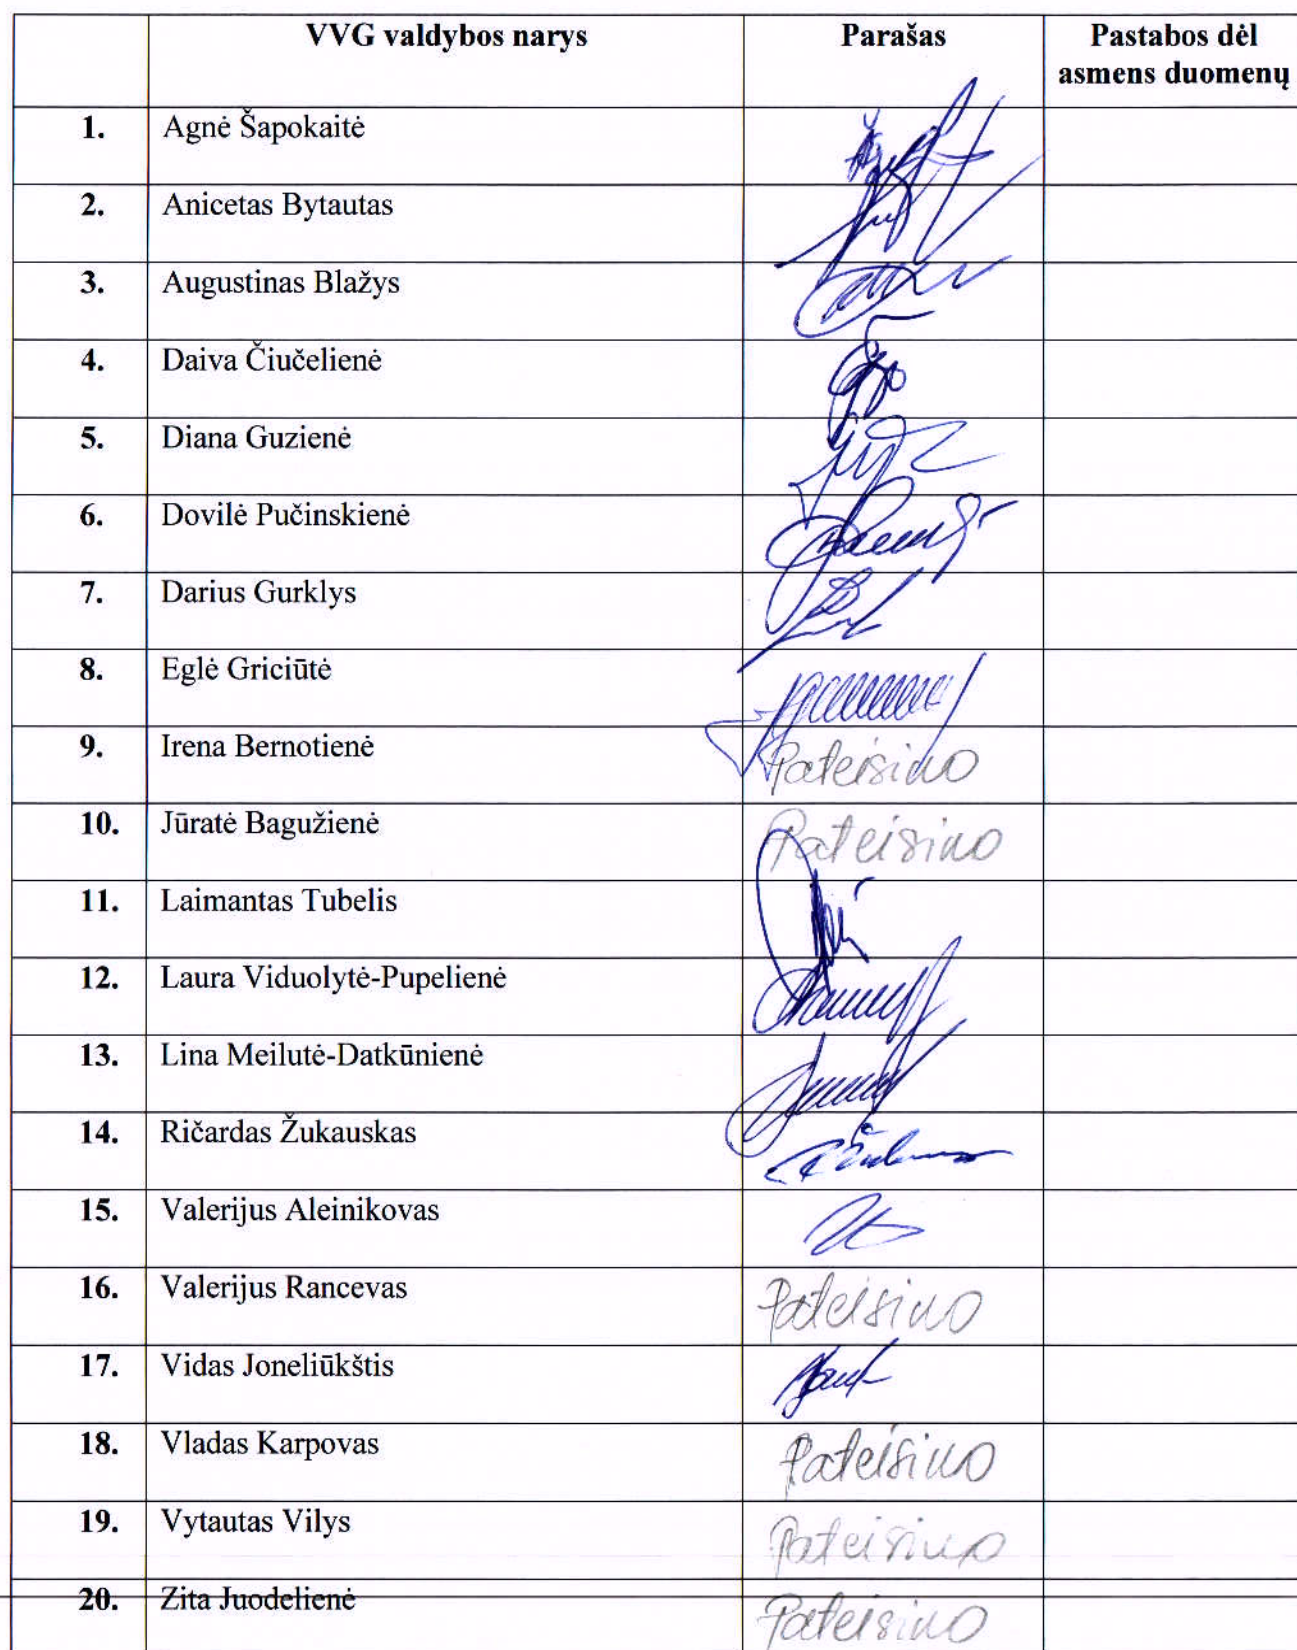 VVG valdybos narys Parašas Pastabos dėl
asmens duomenų
1. Agnė Šapokaitė
2. Anicetas Bytautas
3. Augustinas Blažys
4. Daiva Čiučelienė
5. Diana Guzienė
6. Dovilė Pučinskienė
7. Darius Gurklys
8. Eglė Griciūtė
9. Irena Bernotienė Pateisino
10. Jūratė Bagužienė Pateisino
11. Laimantas Tubelis
12. Laura Viduolytė-Pupelienė
13. Lina Meilutė-Datkūnienė
14. Ričardas Žukauskas
15. Valerijus Aleinikovas
16. Valerijus Rancevas Pateisino
17. Vidas Joneliūkštis
18. Vladas Karpovas Pateisino
19. Vytautas Vilys Pateisino
20. Zita Juodelienė Pateisino